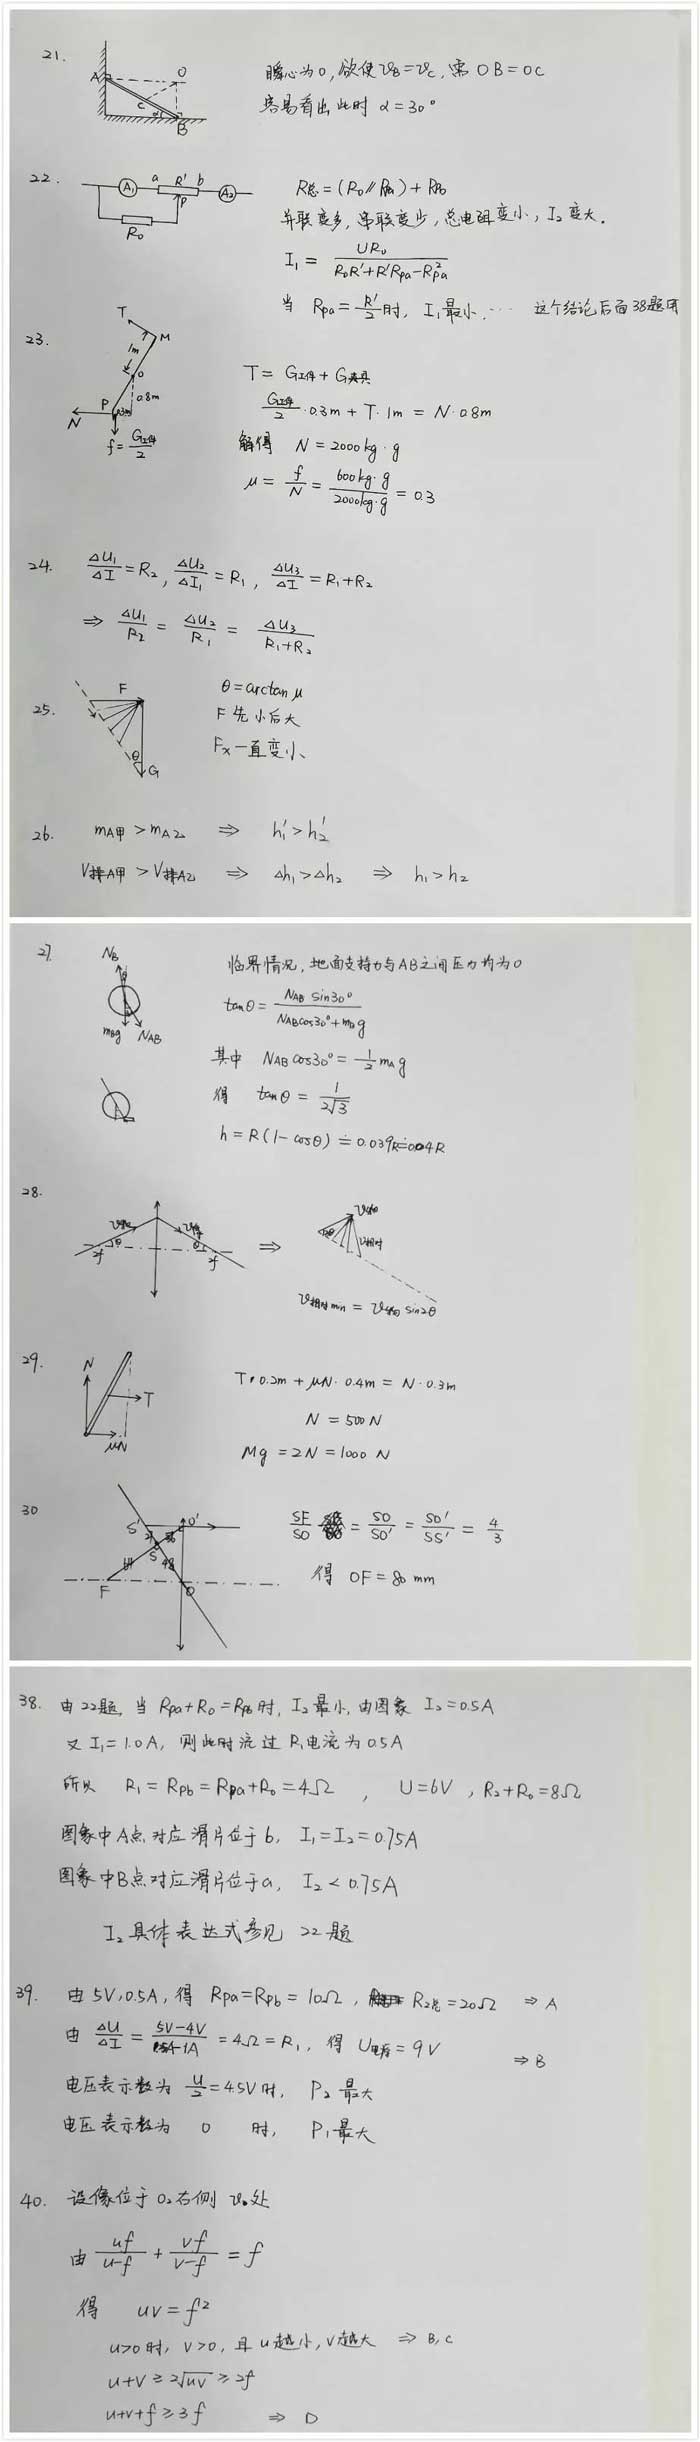 21.
A
O
C
α
B
瞬心为0,欲使 v_B=v_C,需 OB=OC
容易看出此时 α=30°
22.
A₁ a R' b A₂
P
R₀
R总=(R₀∥R_Pa)+R_Pb
并联变多,串联变少,总电阻变小,I₂变大.
I₁ = UR₀ / (R₀R'+R'R_Pa-R_Pa²)
当 R_Pa=R'/2 时,I₁最小.… 这个结论后面38题用
23.
T
M
1m
O
0.8m
P
N
f=G工件/2
T = G工件+G夹具
G工件/2·0.3m + T·1m = N·0.8m
解得 N=2000kg·g
μ = f/N = 600kg·g/2000kg·g = 0.3
24. ΔU₁/ΔI=R₂, ΔU₂/ΔI₁=R₁, ΔU₃/ΔI=R₁+R₂
⇒ ΔU₁/R₂ = ΔU₂/R₁ = ΔU₃/(R₁+R₂)
25.
F
θ
G
θ=arctan μ
F先小后大
Fx一直变小
26. m_A甲>m_A乙 ⇒ h₁'>h₂'
V排A甲>V排A乙 ⇒ Δh₁>Δh₂ ⇒ h₁>h₂
27.
N_B
θ
m_Bg
N_AB
临界情况,地面支持力与AB之间压力均为0
tanθ = N_AB sin30° / (N_AB cos30°+m_Bg)
其中 N_AB cos30°=½m_Ag
得 tanθ = 1/(2√3)
h=R(1-cosθ)≐0.039R≐0.04R
28.
v物 v像
2f θ θ 2f
⇒
v物
2θ
v相对
v相对min = v物 sin2θ
29.
N
T
μN
T·0.2m+μN·0.4m=N·0.3m
N=500N
Mg=2N=1000N
30
S' O'
S
48
F
O
SF/SO = SO/SO' = SO'/SS' = 4/3
得 OF=80mm
38. 由22题,当 R_Pa+R₀=R_Pb时,I₂最小,由图象 I₂=0.5A
又 I₁=1.0A,则此时流过R₁电流为0.5A
所以 R₁=R_Pb=R_Pa+R₀=4Ω , U=6V ,R₂+R₀=8Ω
图象中A点对应滑片位于b, I₁=I₂=0.75A
图象中B点对应滑片位于a, I₂<0.75A
I₂具体表达式参见22题
39. 由5V,0.5A,得 R_Pa=R_Pb=10Ω, R₂总=20Ω ⇒A
由 ΔU/ΔI = (5V-4V)/(-1A) = 4Ω=R₁,得 U电源=9V ⇒B
电压表示数为 U/2=4.5V时, P₂最大
电压表示数为 0 时, P₁最大
40. 设像位于O₂右侧 v处
由 uf/(u-f) + vf/(v-f) = f
得 uv=f²
u>0时,v>0,且u越小,v越大 ⇒B,C
u+v≥2√uv≥2f
u+v+f≥3f ⇒ D